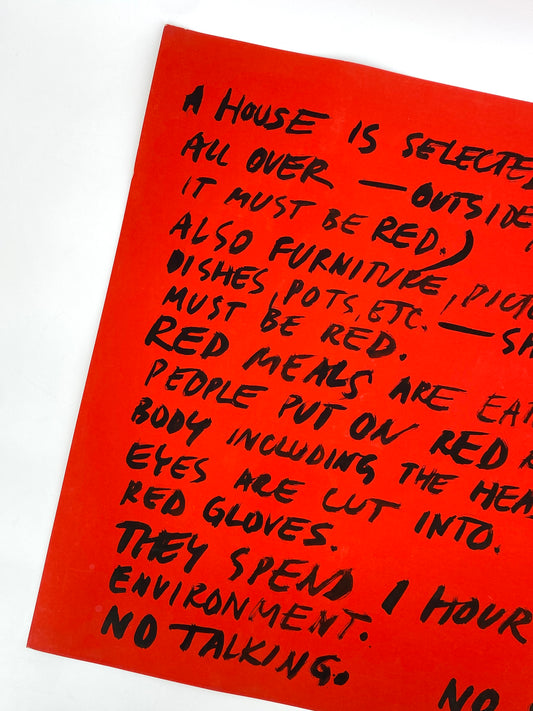 A HOUSE IS SELECTED
ALL OVER — OUTSIDE
IT MUST BE RED.)
ALSO FURNITURE,
DISHES, POTS, ETC. —
MUST BE RED.
RED MEALS ARE
PEOPLE PUT ON RED
BODY INCLUDING THE
EYES ARE CUT INTO.
RED GLOVES.
THEY SPEND 1 HOUR
ENVIRONMENT.
NO TALKING.
NO